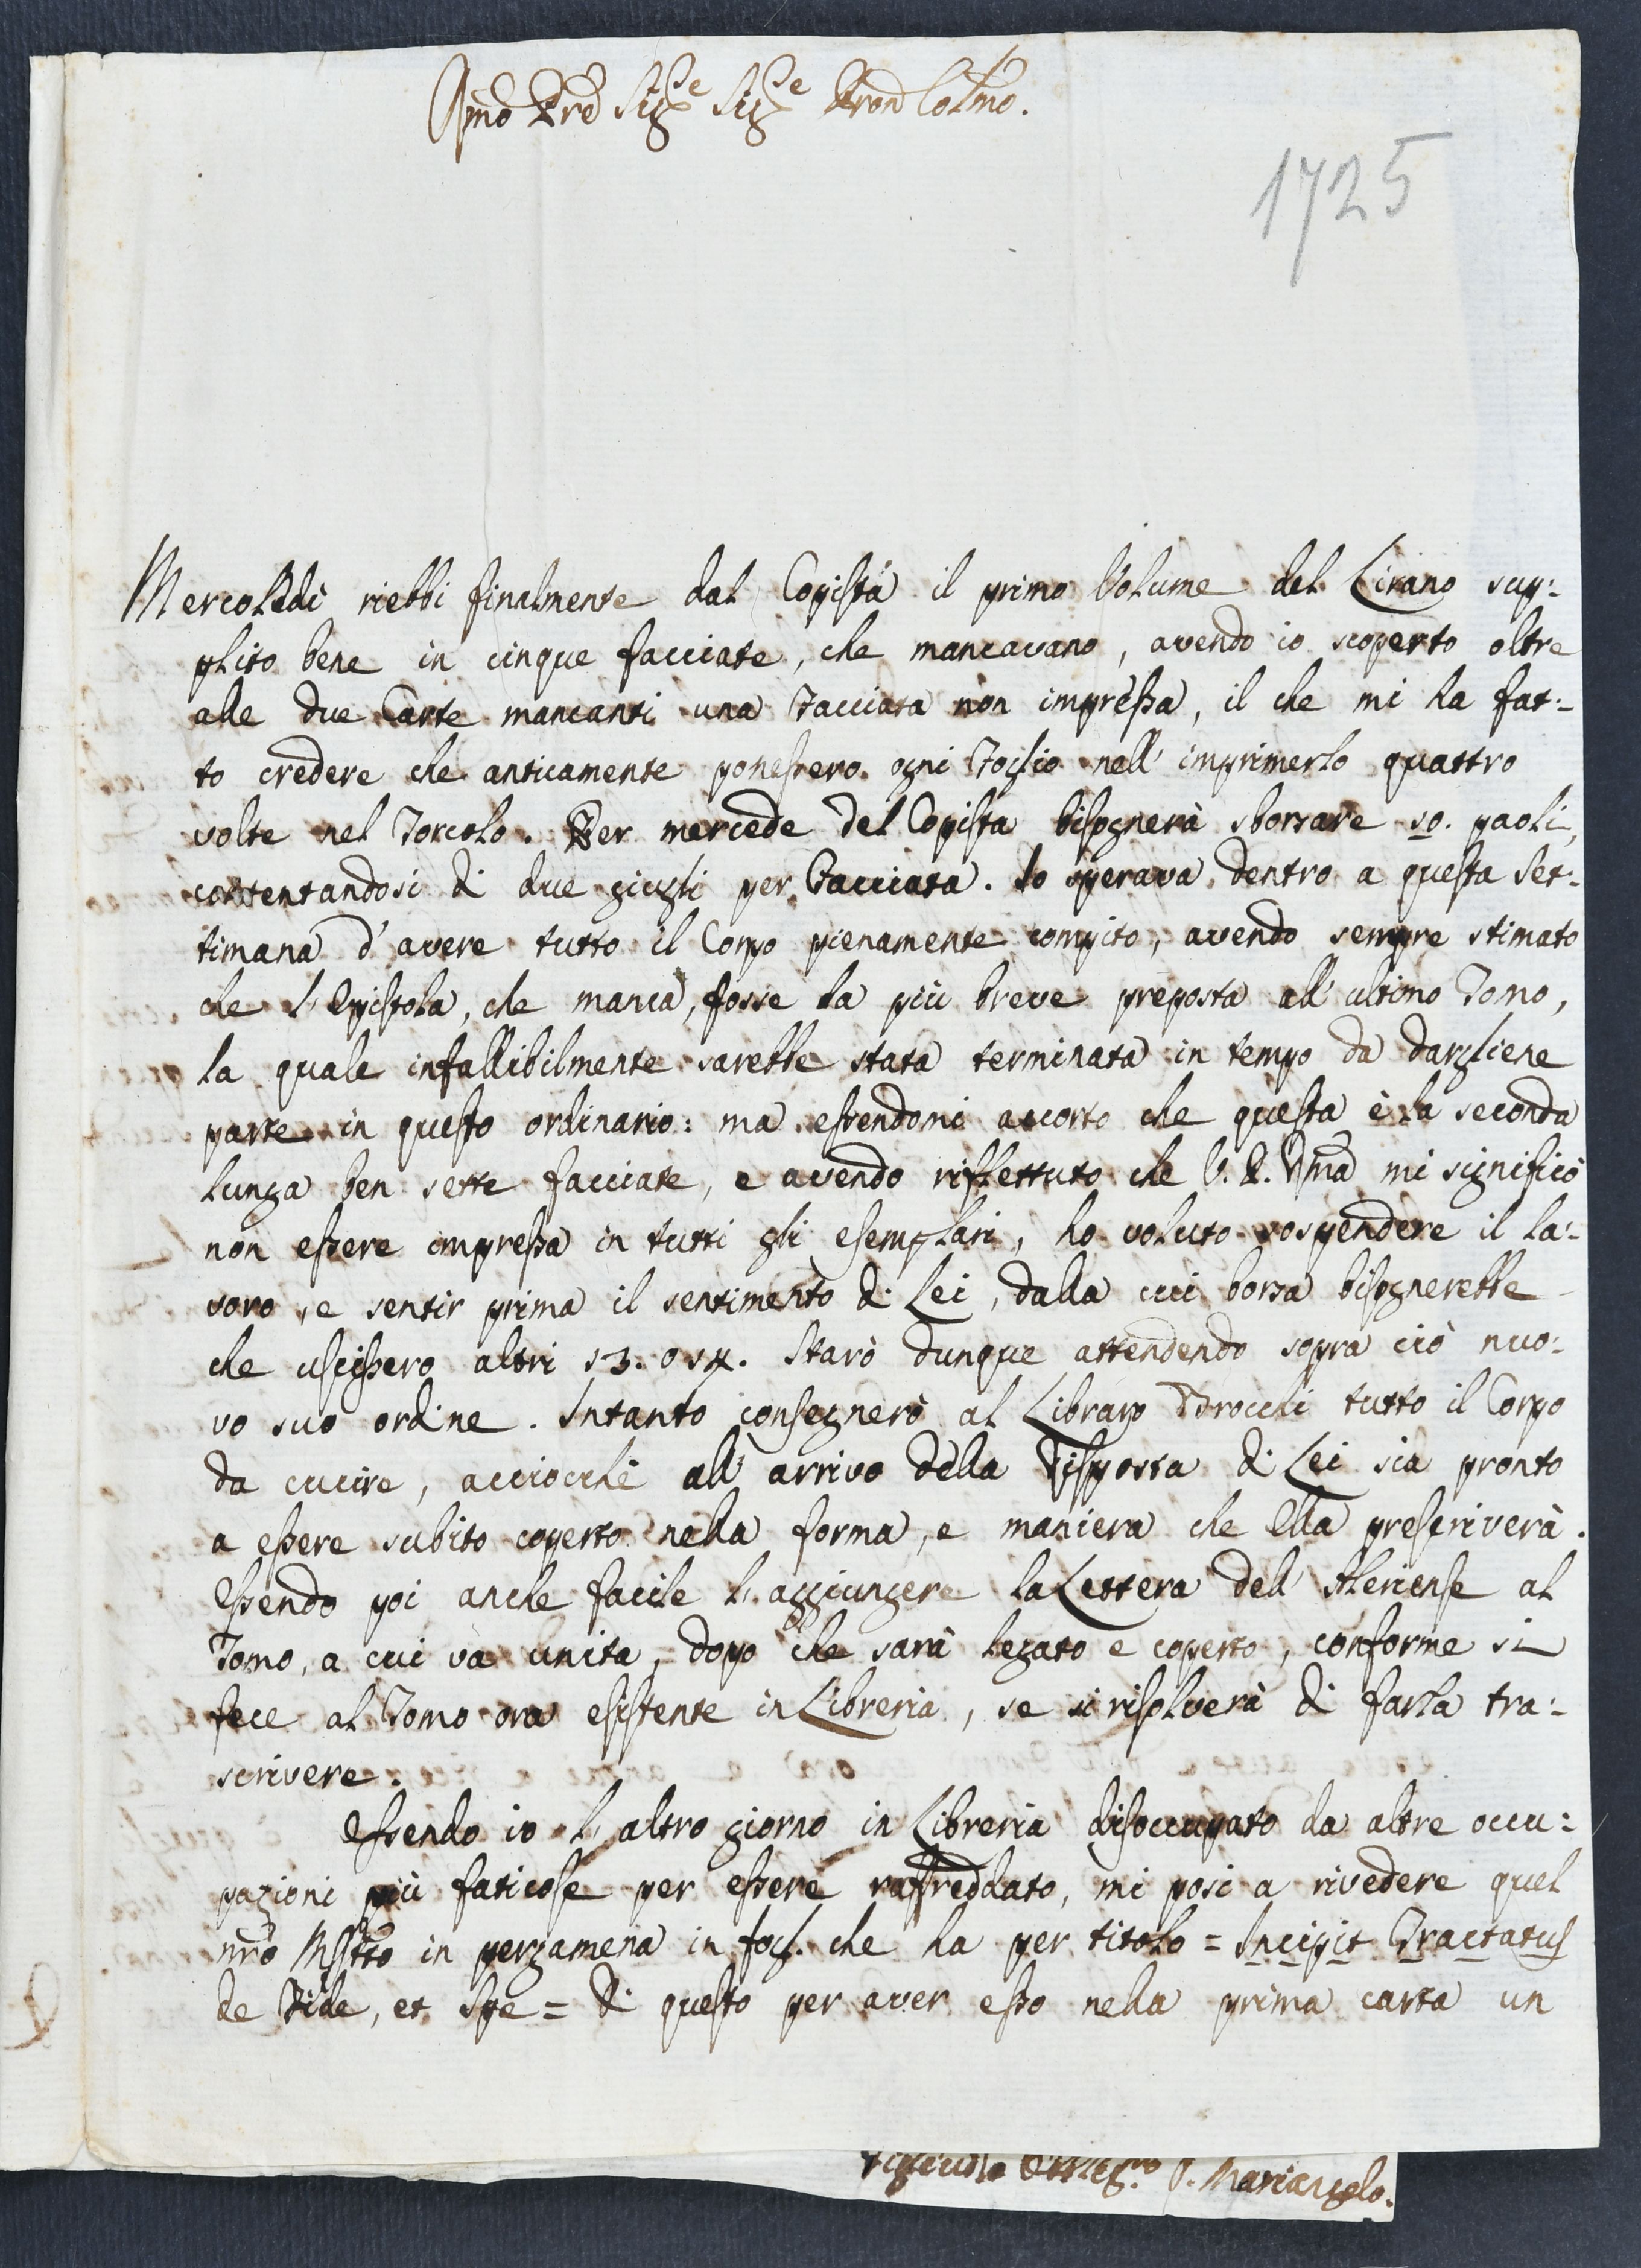 Rmo Pre Sige Sige Pron Colmo.
1725
Mercoledì riebbi finalmente dal Copista il primo Volume del Lirano sup:
plito bene in cinque facciate, che mancavano, avendo io scoperto oltre
alle due Carte mancanti una Facciata non impressa, il che mi ha fat:
to credere che anticamente ponessero ogni Foglio nell' imprimerlo quattro
volte nel Torcolo. Per mercede del Copista bisognerà sborsare 10. paoli,
contentandosi di due giugli per Facciata. Io sperava dentro a questa Set:
timana d' avere tutto il Corpo pienamente compito, avendo sempre stimato
che l' Epistola, che manca, fosse la più breve preposta all' ultimo Tomo,
la quale infallibilmente sarebbe stata terminata in tempo da dargliene
parte in questo ordinario: ma essendomi accorto che questa è la seconda
lunga ben sette facciate, e avendo riflettuto che V. P. Rma mi significò
non essere impressa in tutti gli esemplari, ho voluto sospendere il la:
voro, e sentir prima il sentimento di Lei, dalla cui borsa bisognerebbe
che uscissero altri 13. o 14. Starò dunque attendendo sopra ciò nuo:
vo suo ordine. Intanto consegnerò al Libraro Brocchi tutto il Corpo
da cucire, acciocchè all' arrivo della Risposta di Lei sia pronto
a essere subito coperto nella forma, e maniera che Ella prescriverà.
Essendo poi anche facile l' aggiungere la Lettera dell' Aleriense al
Tomo, a cui va unita, dopo che sarà legato e coperto, conforme si
fece al Tomo ora esistente in Libreria, se si risolverà di farla tra:
scrivere.
Essendo io l' altro giorno in Libreria disoccupato da altre occu:
pazioni più faticose per essere raffreddato, mi posi a rivedere quel
nro MSstto in pergamena in fogl. che ha per titolo = Incipit Tractatus
de Fide, et Spe = Di questo per aver esso nella prima carta un
P. Mariangelo.